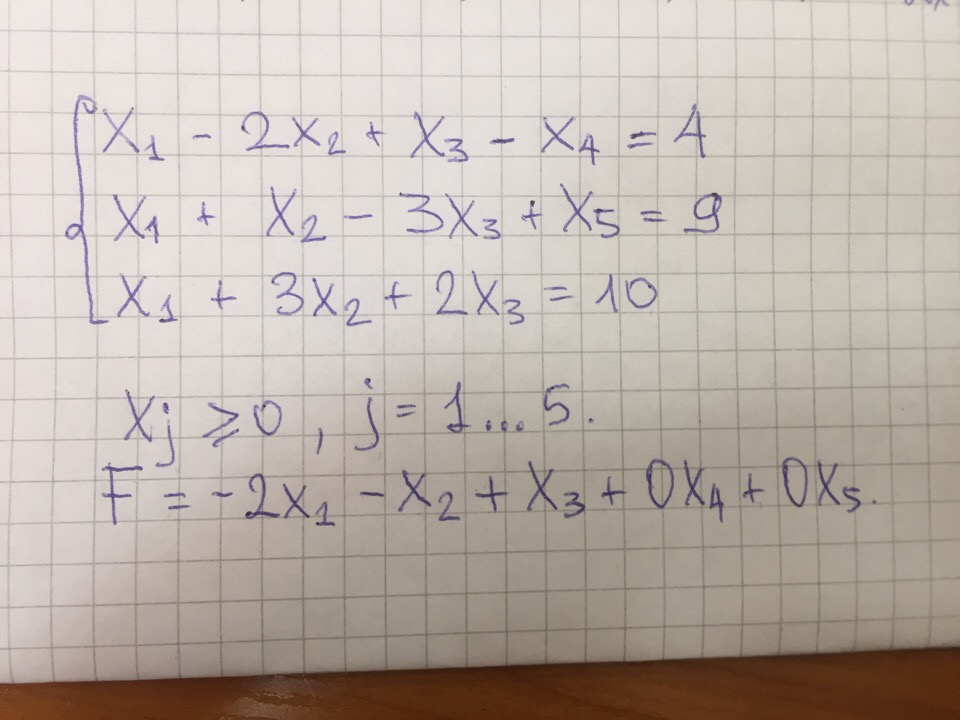 X₁ - 2x₂ + x₃ - x₄ = 4
X₁ + X₂ - 3x₃ + X₅ = 9
X₁ + 3x₂ + 2x₃ = 10
Xj ⩾ 0 , j = 1...5.
F = -2x₁ - x₂ + x₃ + 0x₄ + 0x₅.